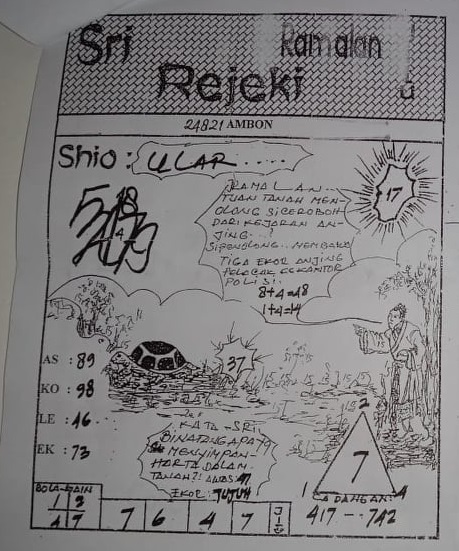 Sri Ramalan
Rejeki
24821 AMBON
Shio : ULAR.....
RAMALAN..
TUAN TANAH MEN-
OLONG SICEROBOH
DARI KEJARAN AN-
JING...!
SIPENOLONG.. MEMBAWA
TIGA EKOR ANJING
PELACAK KEKANTOR
POLISI..
8+4=48
1+4=14
17
AS : 89
KO : 98
LE : 46
EK : 73
37
KATA-SRI
BINATANG APA YG
MENYIMPAN-
HARTA DALAM-
TANAH?! AWAS: 47
EKOR: TUJUH
2
7
1 4
CADANGAN:
417 -- 742
BOLA-MAIN
1 3
4 7
7 6 4 7